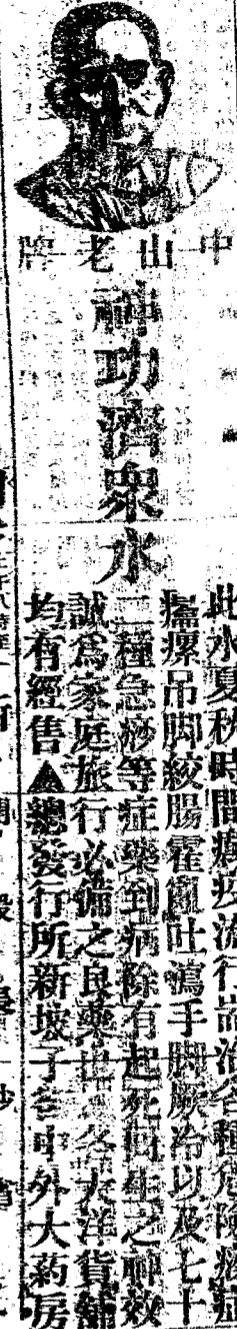 中山老牌
神功濟衆水
此水夏秋時間癘疫流行耑治各種危險痧症
癟瘰吊脚絞腸霍亂吐瀉手脚厥冷以及七十
二種急痧等症藥到病除有起死回生之神效
誠爲家庭旅行必備之良藥也各大洋貨舖
均有經售▲總發行所新坡子街中外大葯房